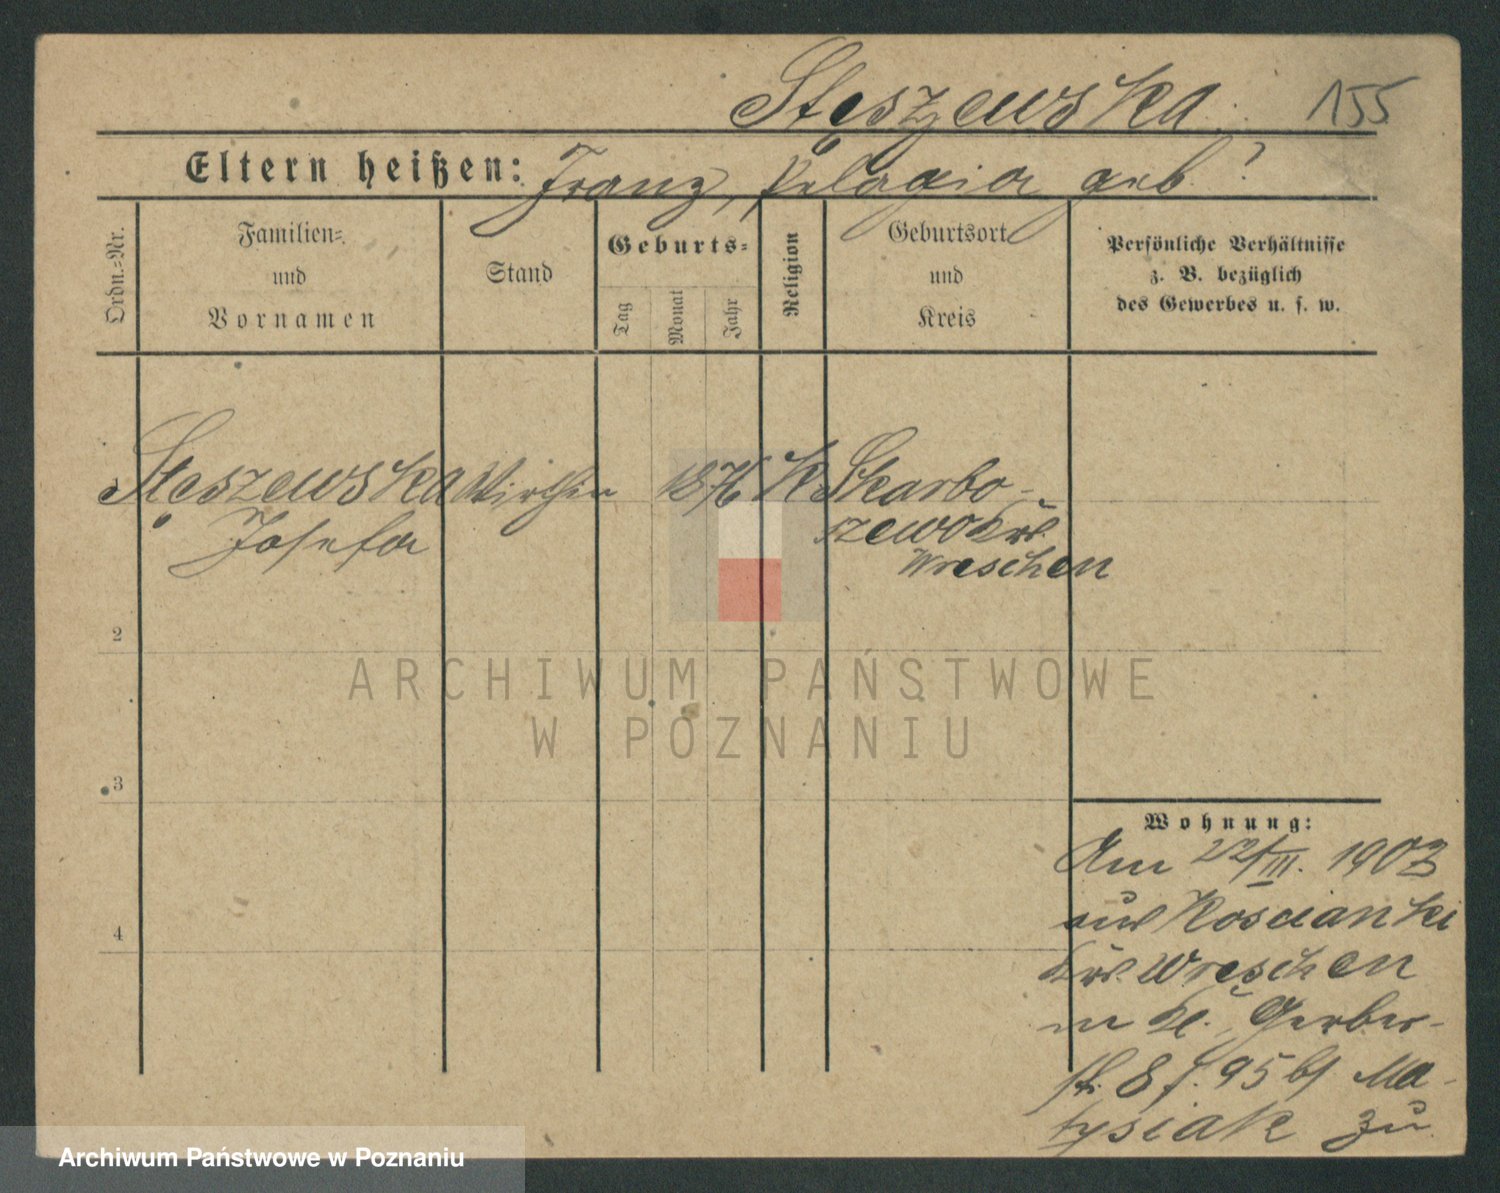 Stęszewska 155
Eltern heißen: Franz, Pelagia geb. ?
Ordn.=Nr.
Familien=
und
Vornamen
Stand
Geburts=
Tag
Monat
Jahr
Religion
Geburtsort
und
Kreis
Persönliche Verhältnisse
z. B. bezüglich
des Gewerbes u. s. w.
Stęszewska Wirthin 1876 K Skarbo-
Josefa szewo Krs.
Wreschen
2
3
4
Wohnung:
Am 22/III. 1903
aus Koscianki
Krs. Wreschen
Kl. Gerber-
str. 8 95 Ma-
tysiak zu
ARCHIWUM PAŃSTWOWE
W POZNANIU
Archiwum Państwowe w Poznaniu